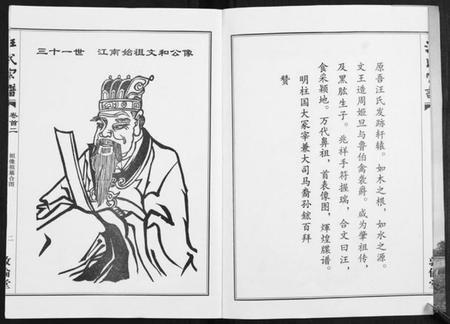 三十一世　江南始祖文和公像
汪氏宗譜
卷首二
祖像祖墓合图
二
敦倫堂
原吾汪氏发跡轩辕。如木之根，如水之源。
文王造周姬旦与鲁伯禽衮爵。成为肇祖传，
及黑肱生子。兆祥手符握瑞，合文曰汪，
食采颖地。万代鼻祖，首表像图，輝煌牒谱。
赞
明柱国大冢宰兼大司马裔孙鋐百拜